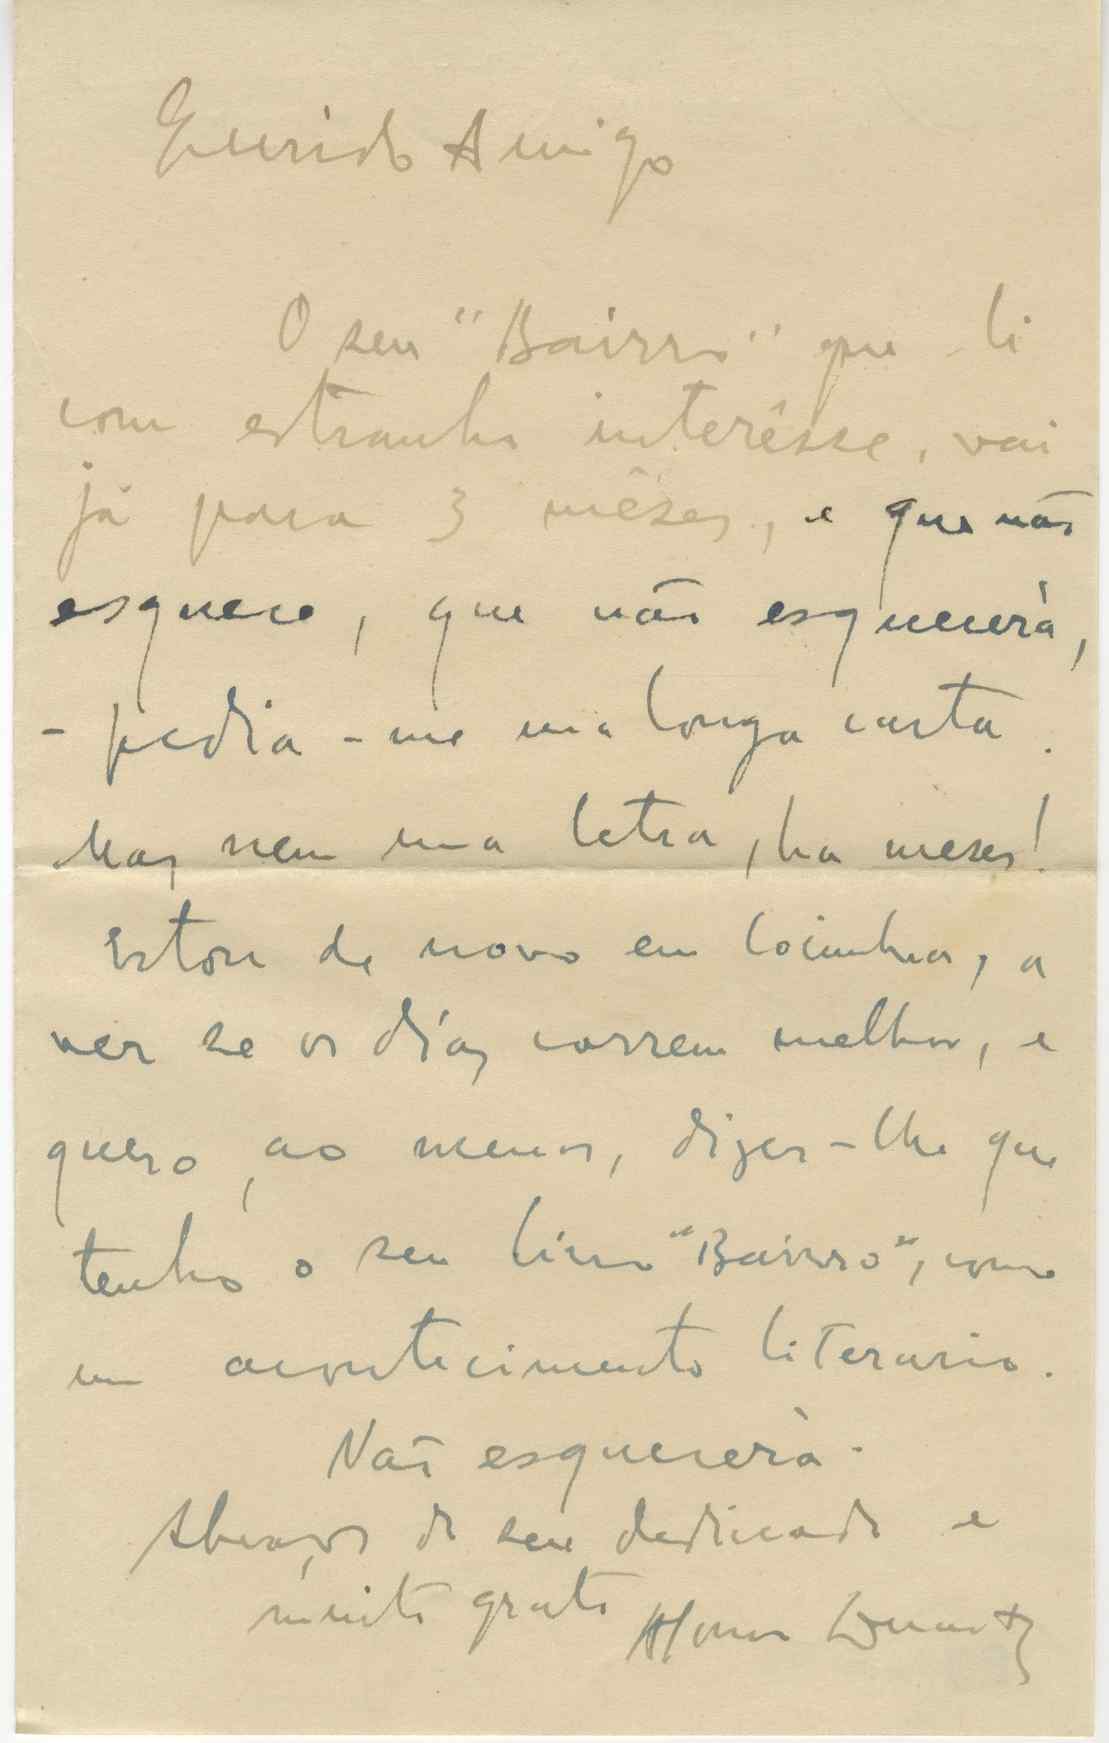 Querido Amigo
O seu "Bairro" que li
com estranho interêsse, vai
já para 3 mêses, e que não
esquece, que não esquecerà,
- pedia-me uma longa carta.
Mas nem uma letra, ha meses!
Estou de novo em Coimbra, a
ver se os dias correm melhor, e
quero, ao menos, dizer-lhe que
tenho o seu livro "Bairro", como
um acontecimento literario.
Não esquecerà.
Abraços do seu dedicado e
muito grato Afonso Duarte